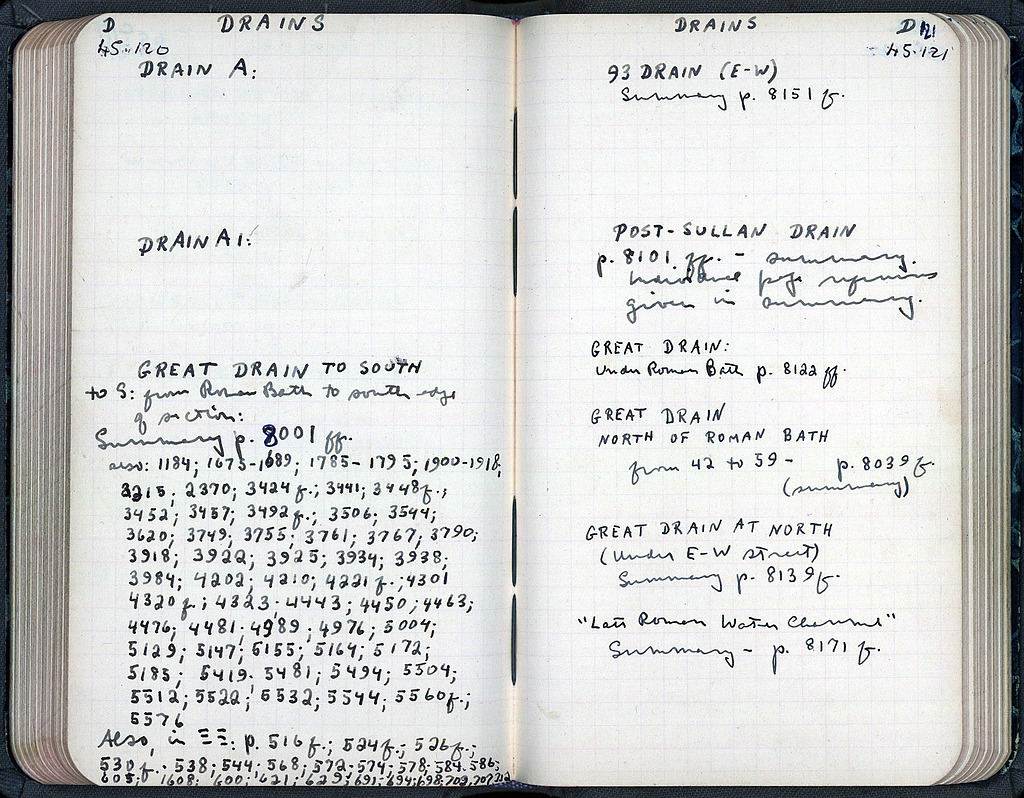 D DRAINS
45-120
DRAIN A:
DRAIN A1:
GREAT DRAIN TO SOUTH
to S: from Roman Bath to south edge
of section:
Summary p. 8001 ff.
also: 1184; 1673-1689; 1785-1795; 1900-1918;
2215; 2370; 3424 f.; 3441; 3448 f.;
3452; 3457; 3492 f.; 3506; 3544;
3620; 3749; 3755; 3761; 3767; 3790;
3918; 3922; 3925; 3934; 3938;
3984; 4202; 4210; 4221 f.; 4301
4320 f.; 4323-4443; 4450; 4463;
4476; 4481-4989; 4976; 5004;
5129; 5147; 5155; 5164; 5172;
5185; 5419-5481; 5494; 5504;
5512; 5522; 5532; 5544; 5560 f.;
5576
Also, in ΞΞ: p. 516 f.; 524 f.; 526 f.;
530 f.-538; 544; 568; 572-574; 578; 584-586;
605; 1608; 600; 621; 629; 691-694; 698; 702, 707, 712
DRAINS D 121
45-121
93 DRAIN (E-W)
Summary p. 8151 f.
POST-SULLAN DRAIN
p. 8101 ff. - summary.
Individual page references
given in summary.
GREAT DRAIN:
Under Roman Bath p. 8122 ff.
GREAT DRAIN
NORTH OF ROMAN BATH
from 42 to 59 - p. 8039 f.
(summary)
GREAT DRAIN AT NORTH
(Under E-W street)
Summary p. 8139 f.
"Late Roman Water Channel"
Summary - p. 8171 f.